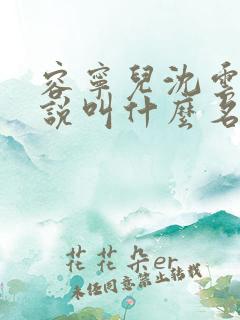 容寧兒沈雲
說叫什麼名
花花朵er
未经同意禁止转载